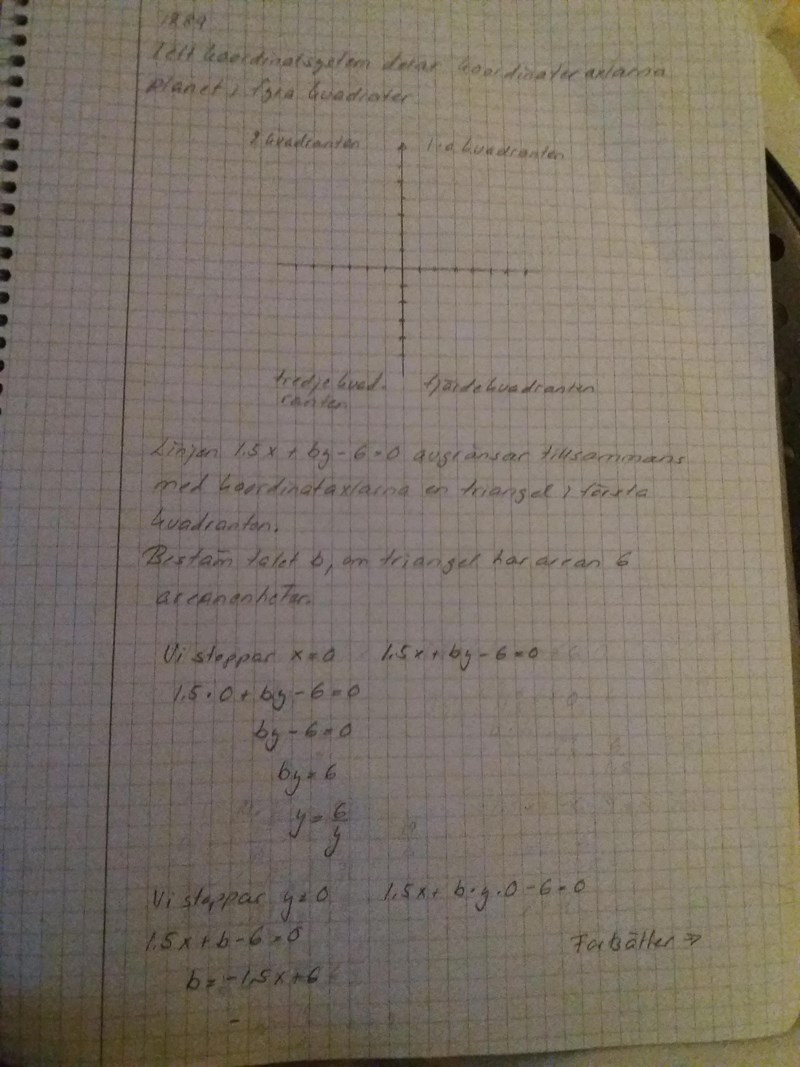 I ett koordinatsystem delar koordinateraxlarna
planet i fyra kvadrater
2 kvadranten 1:a kvadranten
tredje kvad- fjärde kvadranten
ranten
Linjen 1.5x + by - 6 = 0 avgränsar tillsammans
med koordinataxlarna en triangel i första
kvadranten.
Bestäm talet b, om triangel har arean 6
areaenheter.
Vi stoppar x = 0 1.5x + by - 6 = 0
1.5 · 0 + by - 6 = 0
by - 6 = 0
by = 6
y = 6/y
Vi stoppar y = 0 1.5x + b · y · 0 - 6 = 0
1.5x + b - 6 = 0 Forsätter ⇒
b = -1.5x + 6
-